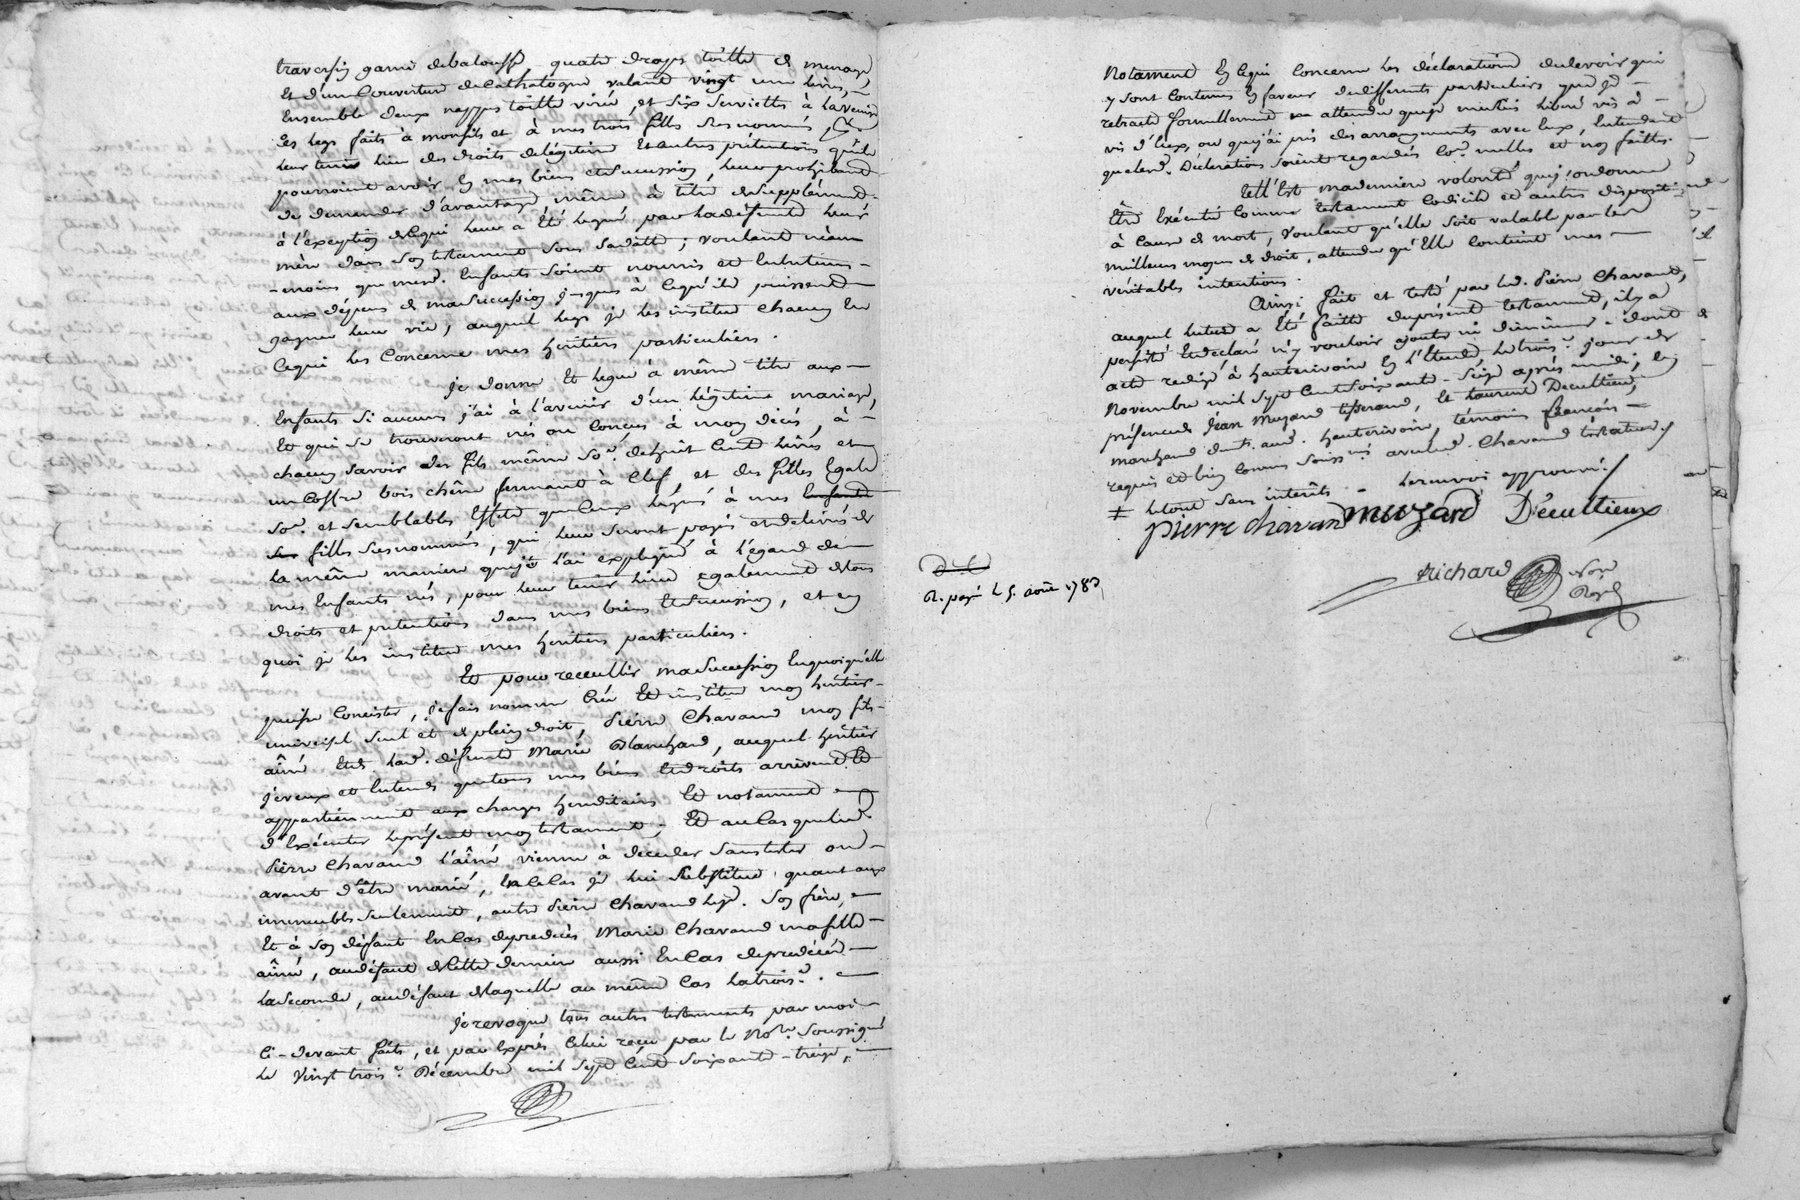 traversin garni de balouffe, quatre draps toille de menage
et d'un Couverture de Cathalogne valant vingt une livres,
Ensemble deux nappes toille virée, et six serviettes à la venise
Les legs faits à mon fils et à mes trois filles susnommés ≠
leur tenir lieu des droits de légitime et autres prétentions qu'ils
pourroient avoir En mes biens et succession, leur prohibant
de demander d'avantage même à titre de supplément
à l'exception de ce qui leur a Eté legué par la défunte leur
mère dans son testament sous sa datte; voulant néan
-moins que mesd. Enfants soient nourris et Entretenus
aux dépens de ma succession jusques à ce qu'ils puissent
gagner leur vie, auquel legs je les institue chacun En
ce qui les Concerne mes heritiers particuliers.
Je donne Et legue à même titre aux
Enfants si aucuns j'ai à l'avenir d'un légitime mariage,
Et qui se trouveront nés ou conçus à mon décès, à
chacun savoir des fils même so.e de huit Cent livres et
un Coffre bois chêne fermant à Clef, et des filles Egale
so.e et semblables Effets que ceux légués à mes Enfants
filles susnommées, qui leur seront payés et delivrés de
la même maniere que je l'ai expliqué à l'égard de
mes Enfants nés, pour leur tenir lieu egalement de tous
droits et pretentions dans mes biens et succession, et en
quoi je les institue mes heritiers particuliers.
Et pour recceullir ma succession En quoi qu'elle
puisse Concister, j'ai fais nommé Créé Et institué mon heritier
universel seul et de plein droit, Pierre Chavand mon fils
aîné Et de lad. défunte Marie Blanchard, auquel heritier
je veux et Entends que tous mes biens Et droits arrivent Et
appartiennent aux charges hereditaires Et notament
d'Exécuter le présent mon testament; Et au Cas que led.
Pierre Chavand l'aîné vienne à decceder sans tester ou
avant d'être marié, En ce Cas je lui substitue quant aux
immeubles seulement, autre Pierre Chavand leje. son frère,
Et à son défaut En Cas de predécès Marie Chavand ma fille
aîné, au défaut de Cette derniere aussi En Cas de predécès
la seconde, au défaut de laquelle au même Cas la trois.e.
Je revoque tous autres testaments par moi
Ci-devant faits, et par Exprès Celui reçu par le No.re soussigné
le vingt trois.e Décembre mil sept Cent soixante-treize,
Notament En ce qui Concerne les déclarations de devoir qui
y sont Contenues En faveur de differents particuliers que je
retracte formellement attendu que je me suis libéré vis à
vis d'Eux, ou que j'ai pris des arrangements avec Eux, Entendant
que lesd. Déclarations soient regardées Co.e nulles et non faittes.
telle Est ma derniere volonté que j'ordonne
Être Exécuté Comme testament Codicile et autre disposit.
à Cause de mort, voulant qu'elle soit valable par les
meilleurs moyens de droit, attendu qu'Elle Contient mes
véritables intentions.
Ainsi fait et testé par led. Pierre Chavand,
auquel lecture a Eté faitte du présent testament, il y a
persisté Et declaré n'y vouloir ajouter ni diminuer: dont
acte redigé à hauterivoire En l'Etude, le trois.e jour de
Novembre mil sept Cent soixante-seize après midi; En
présence de Jean Muzard tisserand, Et Laurent Decultieux,
marchand dem.ts aud. hauterivoire, témoins françois
requis et bien Connus souss.nés avec led. Chavand testateur
≠ le tout sans interêts - le renvoi approuvé
pierre chavand muzard Décultieux
Richard No.re
Royal
R. payé le 5. août 1783